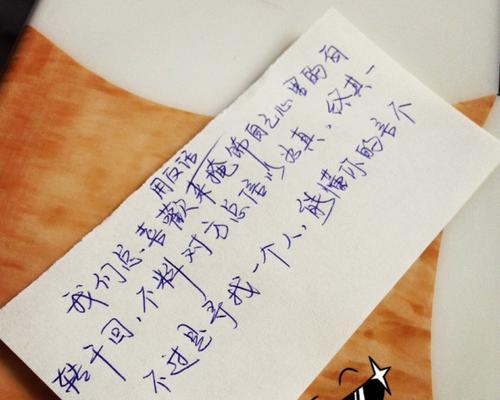 用反话
我们总喜歡来掩饰自己心里的百
转千回，不料对方总信以为真，终其一
不过是寻找一个人，能懂你的言不